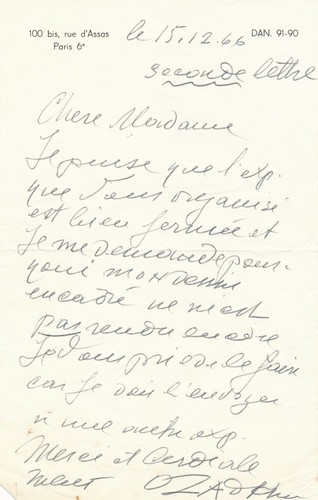 100 bis, rue d'Assas
Paris 6e
DAN. 91-90
le 15.12.66
seconde lettre
Chere Madame
Je pense que l'exp.
que Vous organisé
est bien fermée et
Je me demande pour-
quoi mon dessin
encadré ne m'est
pas rendu encore
Je Vous prie de le faire
car Je dois l'envoyer
à une autre exp.
Merci et Cordiale
ment OZADKine